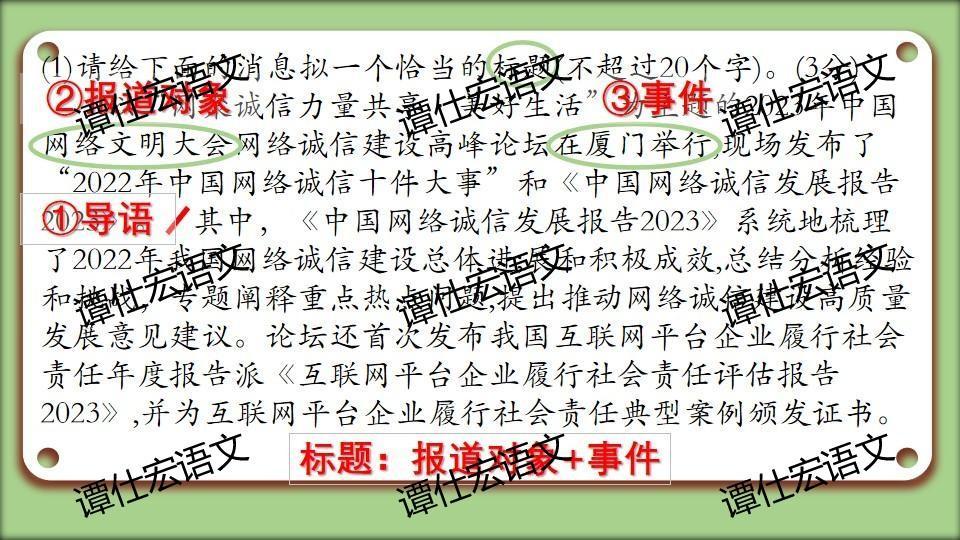 (1)请给下面的消息拟一个恰当的标题(不超过20个字)。(3分)
②报道对象
③事件
诚信力量共享 美好生活”为主题的2023年中国
网络文明大会网络诚信建设高峰论坛在厦门举行,现场发布了
“2022年中国网络诚信十件大事”和《中国网络诚信发展报告
①导语
其中，《中国网络诚信发展报告2023》系统地梳理
了2022年我国网络诚信建设总体进展和积极成效,总结分析经验
和挑战，专题阐释重点热点问题,提出推动网络诚信建设高质量
发展意见建议。论坛还首次发布我国互联网平台企业履行社会
责任年度报告派《互联网平台企业履行社会责任评估报告
2023》,并为互联网平台企业履行社会责任典型案例颁发证书。
标题：报道对象+事件
谭仕宏语文 谭仕宏语文 谭仕宏语文
谭仕宏语文 谭仕宏语文 谭仕宏语文
谭仕宏语文 谭仕宏语文 谭仕宏语文